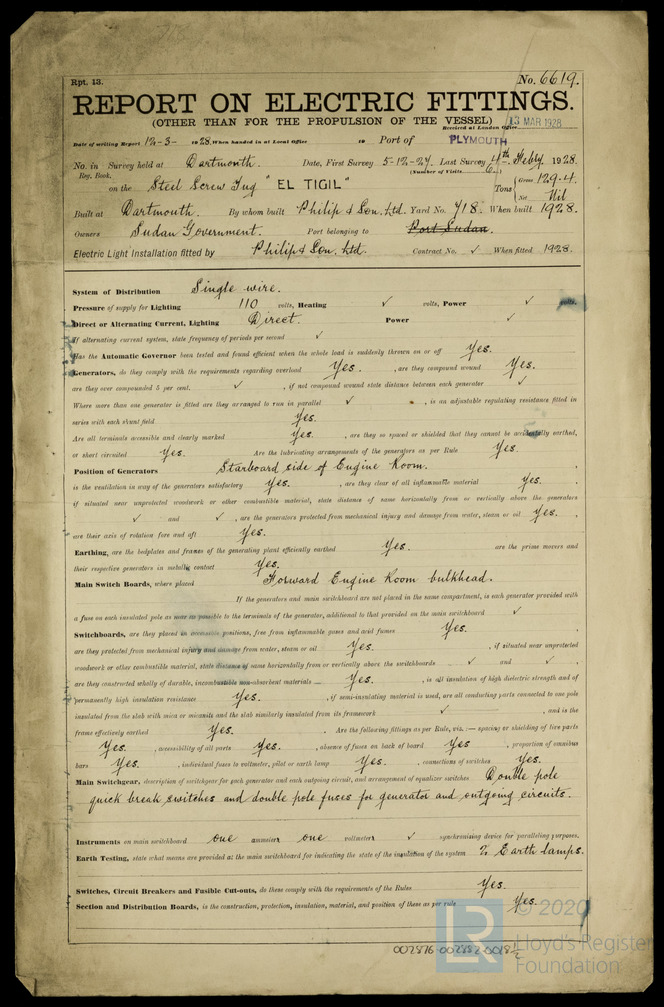 Rpt. 13.
No. 6619.
REPORT ON ELECTRIC FITTINGS.
(OTHER THAN FOR THE PROPULSION OF THE VESSEL)
Received at London Office 13 MAR 1928
Date of writing Report 12-3-1928. When handed in at Local Office to Port of PLYMOUTH
No. in Survey held at Dartmouth. Date, First Survey 5-12-27. Last Survey 4th Febry. 1928.
Reg. Book. (Number of Visits 6.)
on the Steel Screw Tug "EL TIGIL" Tons { Gross 129.4. Net Nil
Built at Dartmouth. By whom built Philip & Son. Ltd. Yard No. 718. When built 1928.
Owners Sudan Government. Port belonging to Port Sudan.
Electric Light Installation fitted by Philip & Son. Ltd. Contract No. ✓ When fitted 1928.
System of Distribution Single wire.
Pressure of supply for Lighting 110 volts, Heating ✓ volts, Power ✓ volts.
Direct or Alternating Current, Lighting Direct. Power ✓
If alternating current system, state frequency of periods per second ✓
Has the Automatic Governor been tested and found efficient when the whole load is suddenly thrown on or off Yes.
Generators, do they comply with the requirements regarding overload Yes. , are they compound wound Yes.
are they over compounded 5 per cent. ✓ , if not compound wound state distance between each generator ✓
Where more than one generator is fitted are they arranged to run in parallel ✓ , is an adjustable regulating resistance fitted in
series with each shunt field Yes.
Are all terminals accessible and clearly marked Yes. , are they so spaced or shielded that they cannot be accidentally earthed,
or short circuited Yes. Are the lubricating arrangements of the generators as per Rule Yes.
Position of Generators Starboard side of Engine Room.
is the ventilation in way of the generators satisfactory Yes. , are they clear of all inflammable material Yes.
if situated near unprotected woodwork or other combustible material, state distance of same horizontally from or vertically above the generators
✓ and ✓ , are the generators protected from mechanical injury and damage from water, steam or oil Yes.
are their axis of rotation fore and aft Yes.
Earthing, are the bedplates and frames of the generating plant efficiently earthed Yes. are the prime movers and
their respective generators in metallic contact Yes.
Main Switch Boards, where placed Forward Engine Room bulkhead.
If the generators and main switchboard are not placed in the same compartment, is each generator provided with
a fuse on each insulated pole as near as possible to the terminals of the generator, additional to that provided on the main switchboard ✓
Switchboards, are they placed in accessible positions, free from inflammable gases and acid fumes Yes.
are they protected from mechanical injury and damage from water, steam or oil Yes. , if situated near unprotected
woodwork or other combustible material, state distance of same horizontally from or vertically above the switchboards ✓ and ✓
are they constructed wholly of durable, incombustible non-absorbent materials Yes. , is all insulation of high dielectric strength and of
permanently high insulation resistance Yes. , if semi-insulating material is used, are all conducting parts connected to one pole
insulated from the slab with mica or micanite and the slab similarly insulated from its framework ✓ , and is the
frame effectively earthed Yes. Are the following fittings as per Rule, viz. :— spacing or shielding of live parts
Yes. , accessibility of all parts Yes. , absence of fuses on back of board Yes , proportion of omnibus
bars Yes. , individual fuses to voltmeter, pilot or earth lamp Yes. , connections of switches Yes.
Main Switchgear, description of switchgear for each generator and each outgoing circuit, and arrangement of equalizer switches Double pole
quick break switches and double pole fuses for generator and outgoing circuits.
Instruments on main switchboard one ammeter one voltmeter ✓ synchronising device for paralleling purposes.
Earth Testing, state what means are provided at the main switchboard for indicating the state of the insulation of the system 2 Earth lamps.
Switches, Circuit Breakers and Fusible Cut-outs, do these comply with the requirements of the Rules Yes.
Section and Distribution Boards, is the construction, protection, insulation, material, and position of these as per rule Yes.
LR © 2020
Lloyd's Register
Foundation